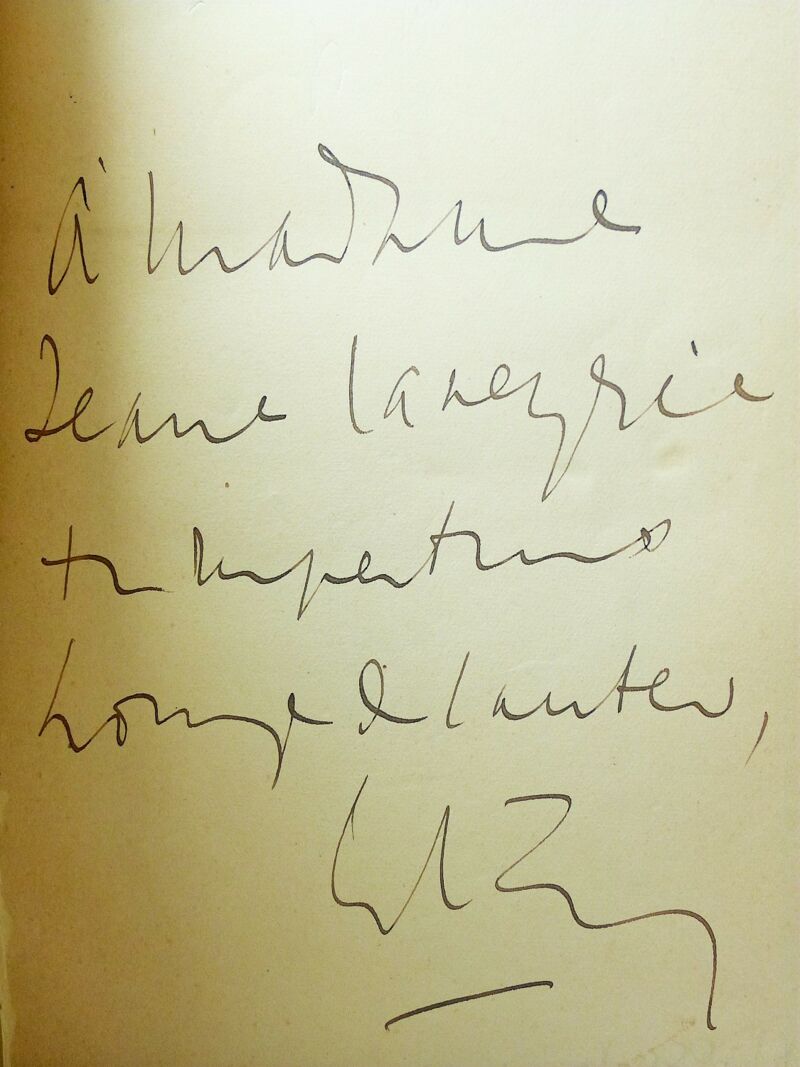 à Madame
Jeanne Laneyrie
très respectueux
hommage de l'auteur,